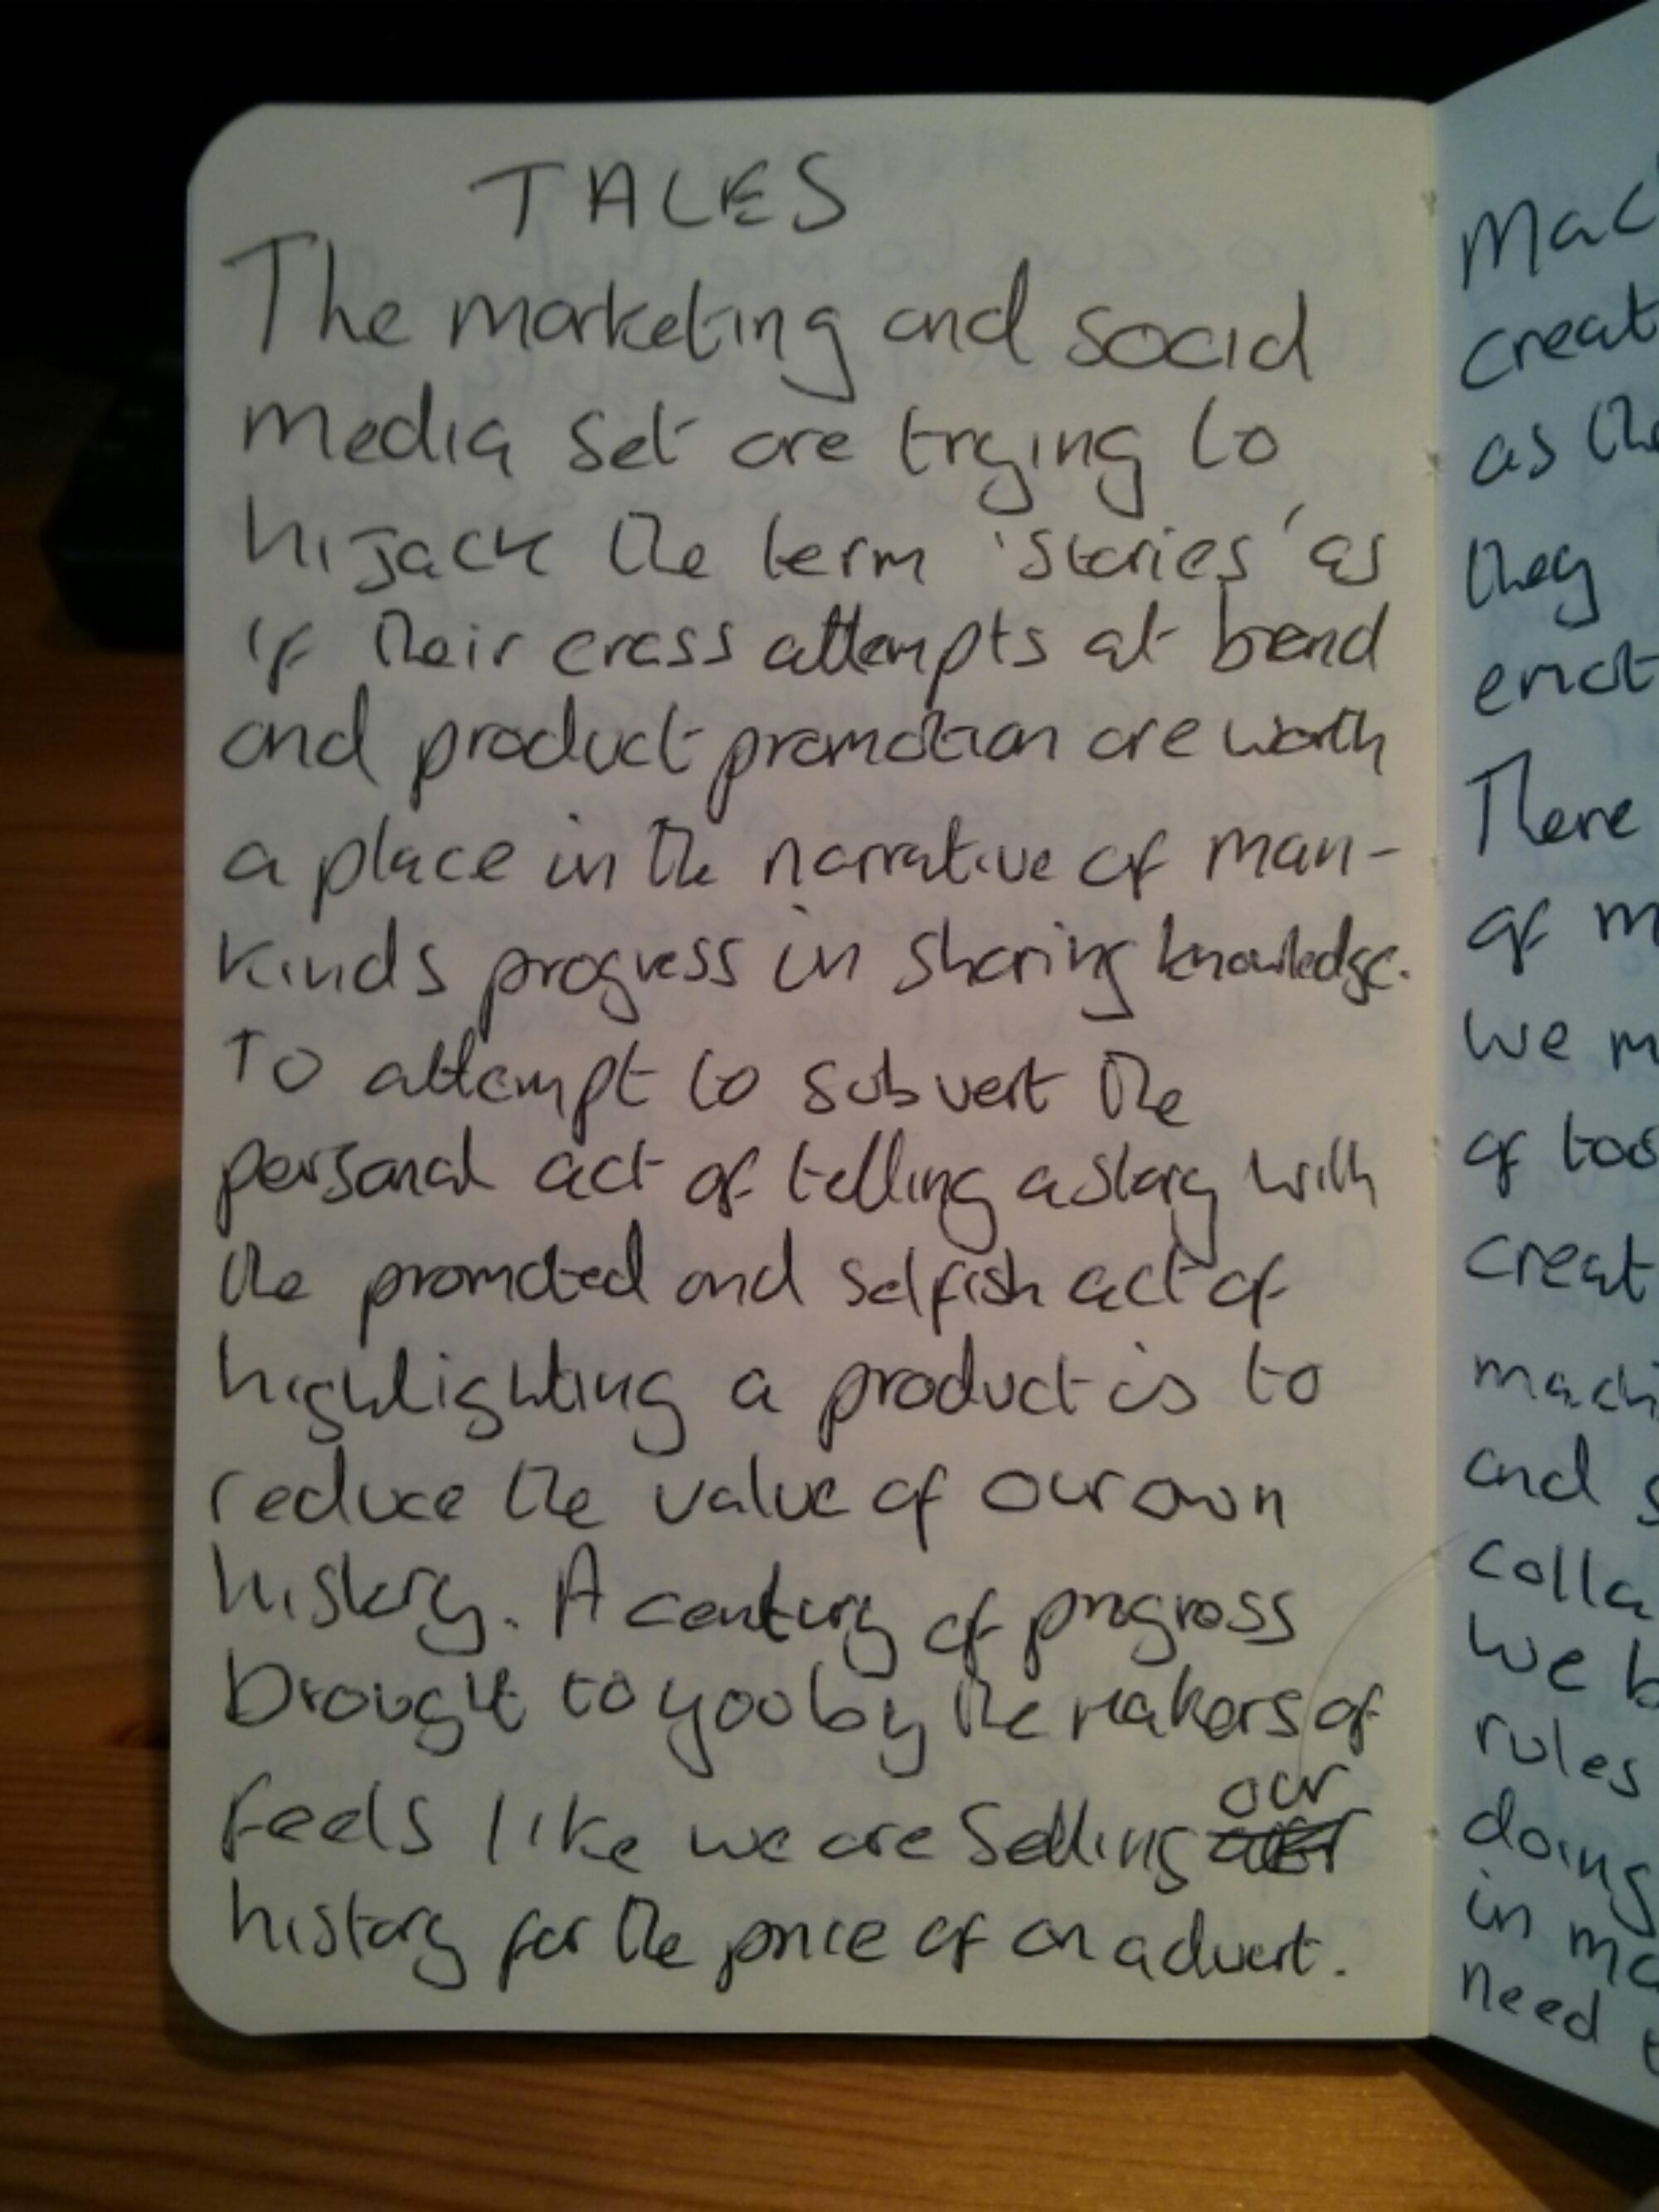 TALES
The marketing and social
media set are trying to
hijack the term 'stories' as
if their crass attempts at brand
and product promotion are worth
a place in the narrative of man-
kinds progress in sharing knowledge.
To attempt to subvert the
personal act of telling a story with
the promoted and selfish act of
highlighting a product is to
reduce the value of our own
history. A century of progress
brought to you by the makers of
feels like we are selling our
history for the price of an advert.
Mac
creat
as the
they
emot
There
of m
we m
of too
creat
machi
and s
colla
we b
rules
doing
in ma
need t